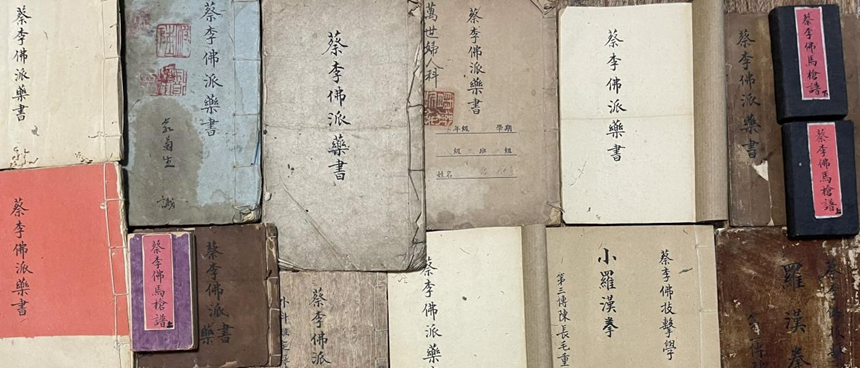 蔡李佛派藥書
蔡李佛派藥書
識
蔡李佛派藥書
萬世婦人科
蔡李佛派藥書
年級 學期
級 班 組
姓名
蔡李佛派藥書
蔡李佛派藥書
蔡李佛馬槍譜
蔡李佛馬槍譜
蔡李佛派藥書
蔡李佛馬槍譜
上
蔡李佛派藥書
蔡李佛派
蔡李佛派藥
蔡李佛技擊學
小羅漢拳
第三傳陳長毛重
羅漢拳